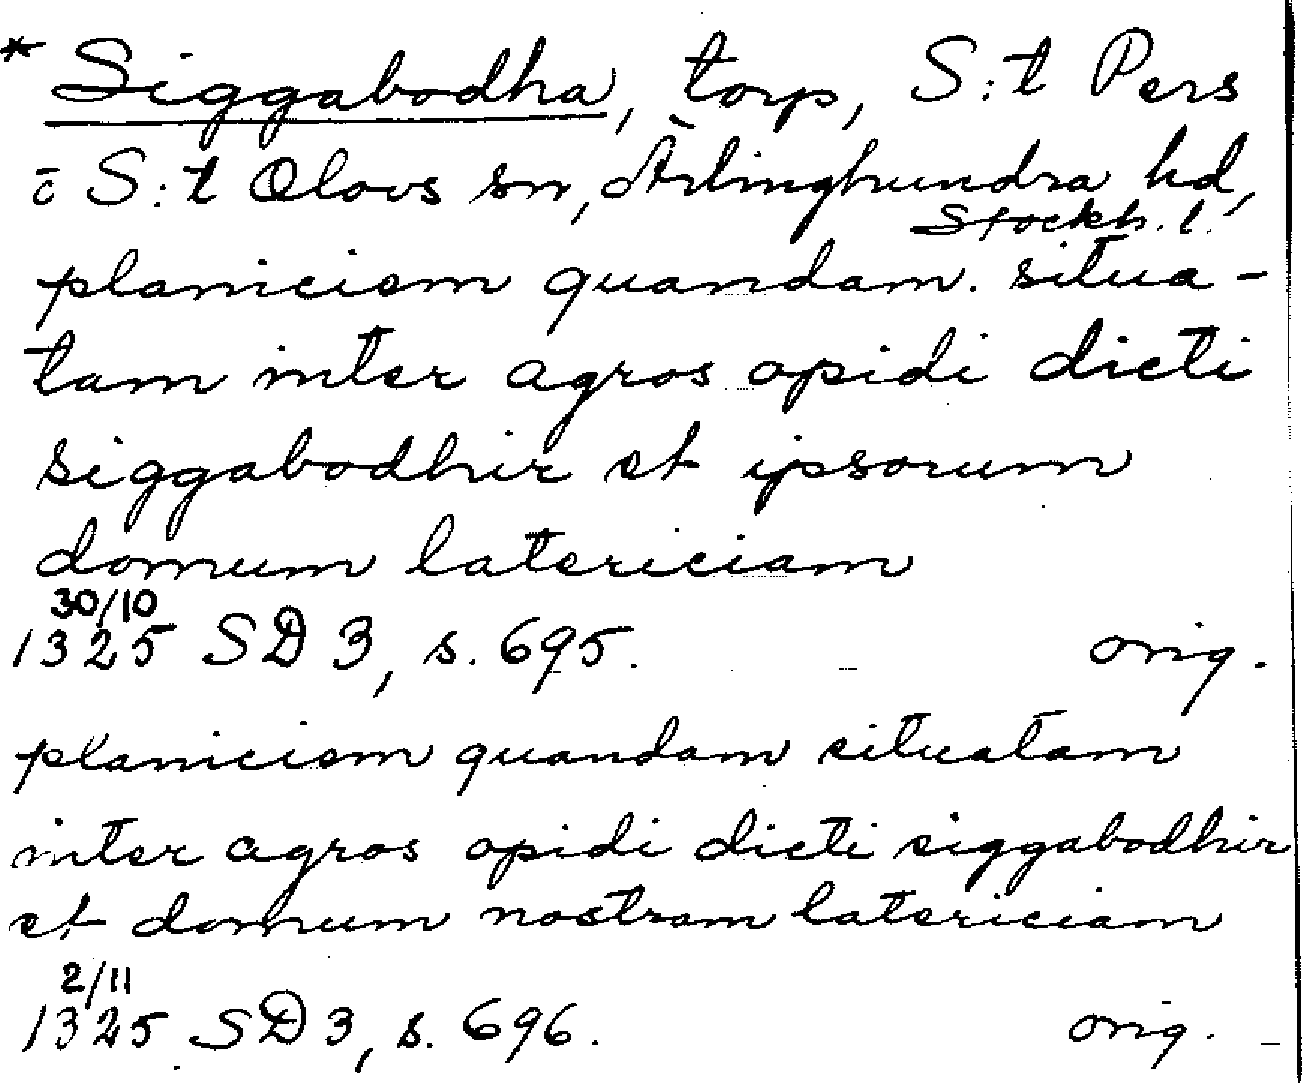 * Siggabodha, torp, S:t Pers
o S:t Olovs sn, Ärlinghundra hd,
Stockh. l.
planiciem quandam. situa-
tam inter agros opidi dicti
siggabodhir et ipsorum
domum latericiam
30/10
1325 SD 3, s. 695. orig.
planiciem quandam situatam
inter agros opidi dicti siggabodhir
et domum nostram latericiam
2/11
1325 SD 3, s. 696. orig.